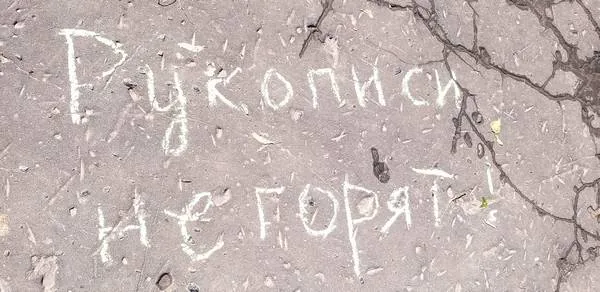 Рукописи
не горят!